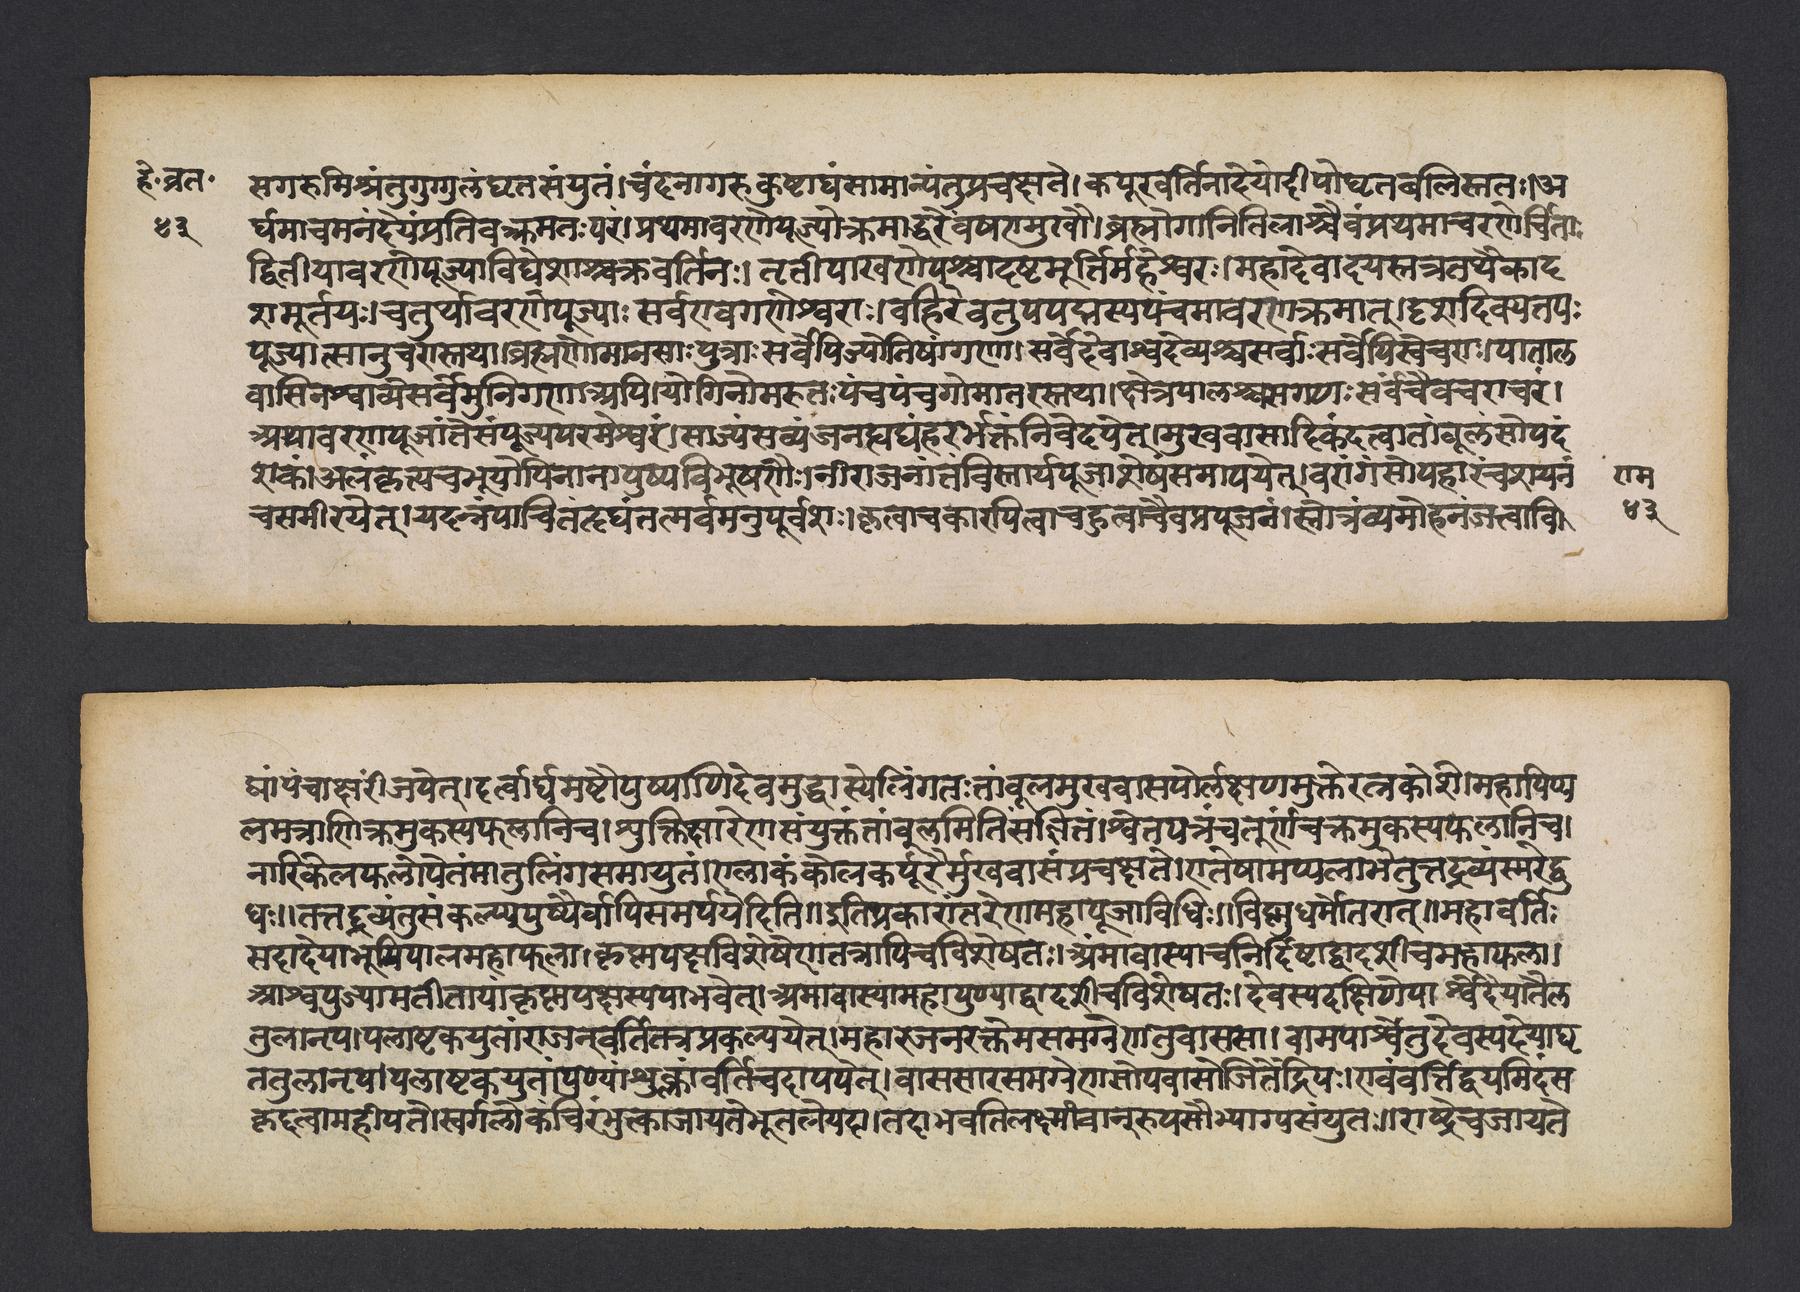 हे॰व्रत॰
४३
सगरुमिश्रंतुगुग्गुलंघृतसंयुतं।चंदनागरुकुष्टाद्यंसामान्यंतुप्रचक्षते।कर्पूरवर्तिनादेयोदीपोघृतबलिस्ततः।।अ
र्घमाचमनंदेयंप्रतिवक्त्रमतःपरं।प्रथमावरणेपूज्योक्रमाद्धेरंवषण्मुखौ।ब्रह्मांगानितिलाश्चैवंप्रथमाचरणेर्चिताः
द्वितीयावरणेपूज्याविघ्नेशाश्चक्रवर्तिनः।तृतीयावरणेपश्चादष्टमूर्तिर्महेश्वरः।महादेवादयस्तत्रतथैकाद
शमूर्तयः।चतुर्थावरणेपूज्याःसर्वएवगणेश्वराः।वहिरेवतुपपद्मस्यपंचमावरणेक्रमात्।दशदिक्पतयः
पूज्यात्सानुचरास्तथा।ब्रह्मणोमानसाःपुत्राःसर्वेपिज्योतिषांगणाः।सर्वेदेवाश्चदेव्यश्चसर्वाःसर्वेपिखेचराः।पाताल
वासिनश्चान्येसर्वेमुनिगणाअपि।योगिनोमरुतःपंचपंचगोमातरस्तथा।क्षेत्रपालश्चसगणःसर्वंचैवचराचरं।
अथावरणपूजांतेसंपूज्यपरमेश्वरं।साज्यंसव्यंजनहृद्यंहरर्भक्तंनिवेदयेत्।मुखवासादिकंदत्वातांवूलंसोपदं
शकं।अलंकृत्यचभूयोपिनानापुष्पविभूषणैः।नीराजनांतंविस्तार्यपूजाशेषंसमापयेत्।वरांगंसोपहारंचशयनं
चसमीरयेत्।यदन्नंपाचितंहृद्यंतत्सर्वमनुपूर्वशः।कृत्वाचकारयित्वाचहुत्वाचैवप्रपूजनं।स्तोत्रंव्यमोहनंजप्त्वावि
राम
४३
द्यांपंचाक्षरींजपेत्।दत्वार्घमष्टौपुष्पाणिदेवमुद्वास्येलिंगतःतांवूलमुखवासयोर्लक्षणमुक्तंरत्नकोशे।महापिप्प
लमत्राणिक्रमुकस्यफलानिच।शुक्तिक्षारेणसंयुक्तंतांवुलमितिसंज्ञितं।श्वेतपत्रंचचूर्णंचक्रमुकस्यफलानिच।
नारिकेलफलोपेतंमातुलिंगसमायुतं।एलाकंकोलकर्पूरैर्मुखवासंप्रचक्षते।एतेषामप्यलाभेतुत्तद्रव्यंस्मरेद्वु
धः।।तत्तद्रव्यंतुसंकल्प्यपुष्पैर्वापिसमर्पयेदिति॥इतिप्रकारांतरेणमहापूजाविधिः॥विष्णुधर्मोतरात्॥महावर्तिः
सदादेयाभूमिपालमहाफला।कृष्णपक्षेविशेषेणतत्रापिचविशेषतः।अंमावास्याचनिर्दिष्टाद्वादशीचमहाफला।
आश्वयुज्यामतीतायांकृष्णपक्षस्ययाभवेत्।अमावास्यामहापुण्याद्वादशीचविशेषतः।देवस्यदक्षिणेपार्श्वेदेयातैल
तुलानृप।पलाष्टकयुतांराजन्वर्तितत्रंप्रकल्पयेत्।महारजनरक्तेमसमग्रेणतुवाससा।वामपार्श्वेतुदेवस्यदेयाघृ
ततुलानृप।पलाष्टकयुतांपुण्यांशुक्लांवर्तिचदापयेत्।वाससारसमग्रेणसोपवासोजितेंद्रियः।एवंवर्त्तिद्वयमिदंस
कृद्दत्वामहीपते।स्वर्गलोकंचिरंभुक्त्वाजायतेभूतलेयदा।तदाभवतिलक्ष्मीवान्रुपसौभाग्यसंयुतः।।राष्ट्रेचजायते